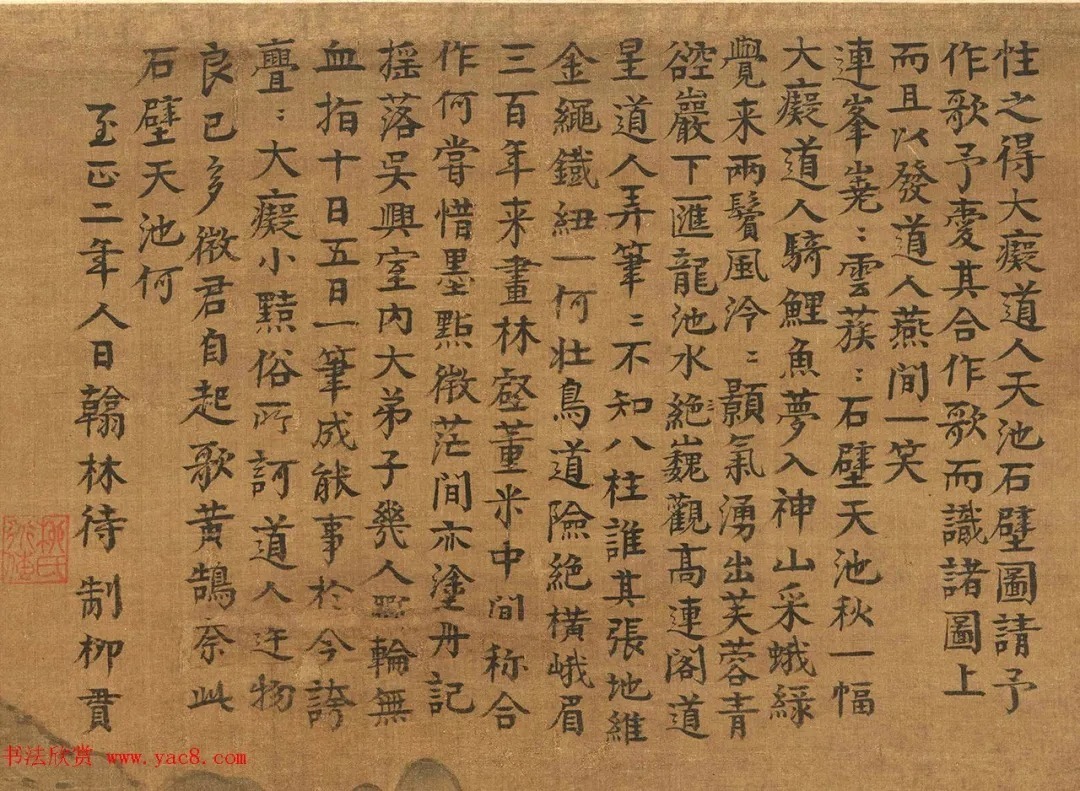 性之得大癡道人天池石壁圖請予
作歌予愛其合作歌而識諸圖上
而且以發道人燕間一笑
連峯嶤:雲蔟:石壁天池秋一幅
大癡道人騎鯉魚夢入神山采蛾緑
覺来兩鬢風泠:顥氣湧出芙蓉青
硿巖下匯龍池水絶巍觀高連閣道
星道人弄筆:不知八柱誰其張地維
金繩鐵紐一何壮鳥道險絶横峨眉
三百年来畫林壑董米中間称合
作何嘗惜墨點微茫間亦塗丹記
揺落吳興室内大弟子幾人輪無
血指十日五日一筆成能事於今誇
亹:大癡小黠俗所訶道人迕物
良已多微君自起歌黄鵠奈此
石壁天池何
至正二年人日翰林待制柳貫
柳氏
书法欣赏 www.yac8.com